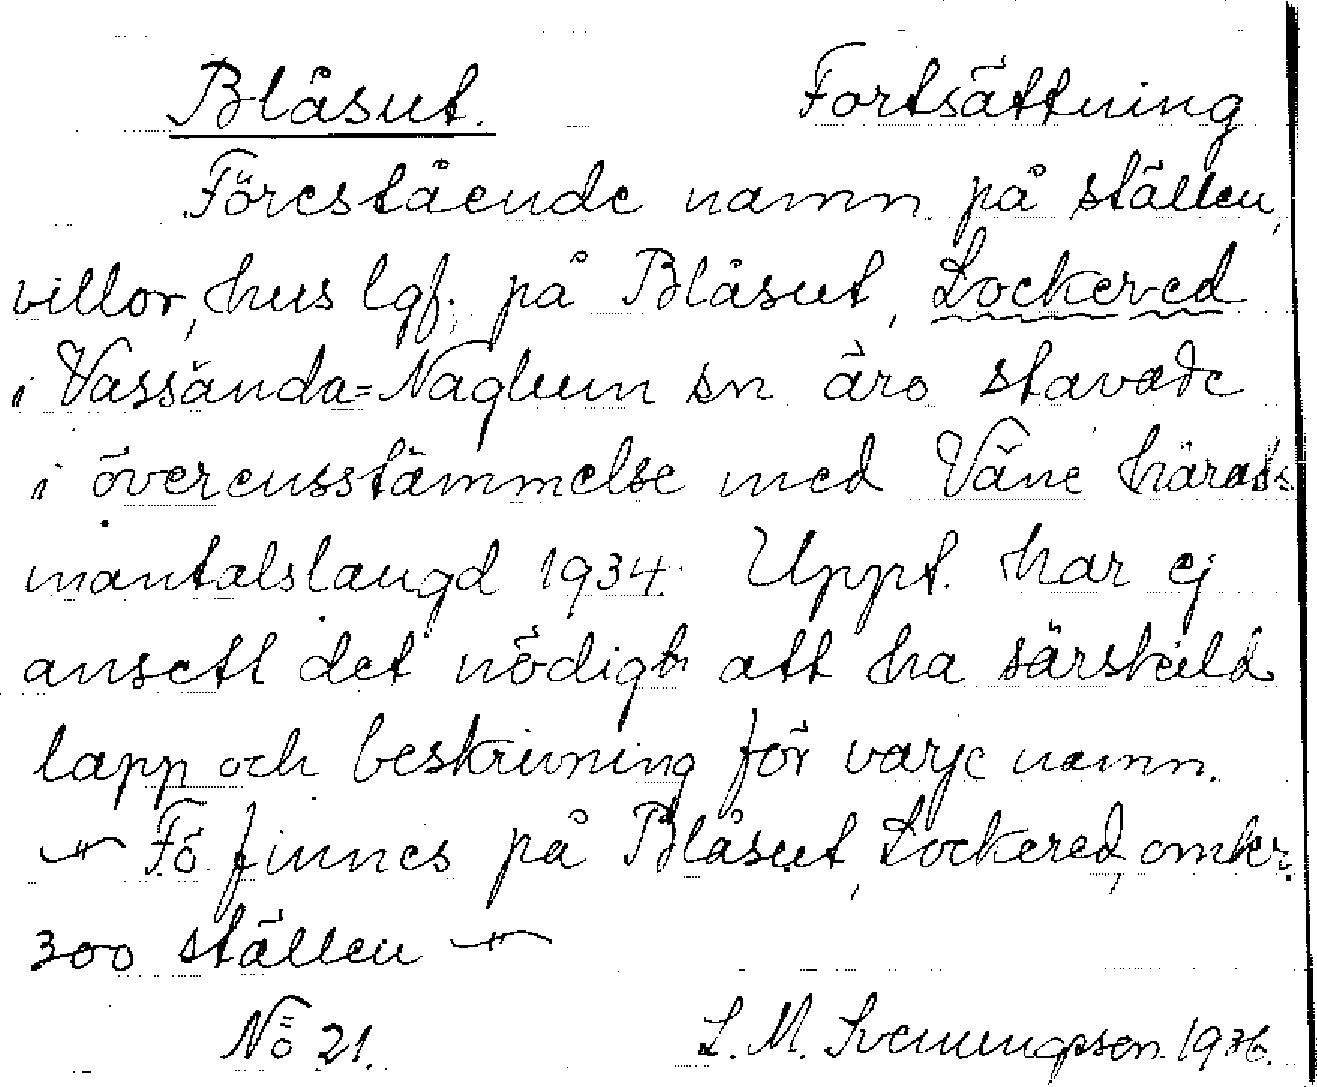 Blåsut. Fortsättning
Förestående namn på ställen,
villor, hus lgf. på Blåsut, Lockered
i Vassända=Naglum sn äro stavade
i överensstämmelse med Väne härads
mantalslängd 1934. Uppt. har ej
ansett det nödigt att ha särskild
lapp och beskrivning för varje namn.
Fö finnes på Blåsut, Lockered, omkr.
300 ställen
No 21. L. M. Svenungsson 1936.